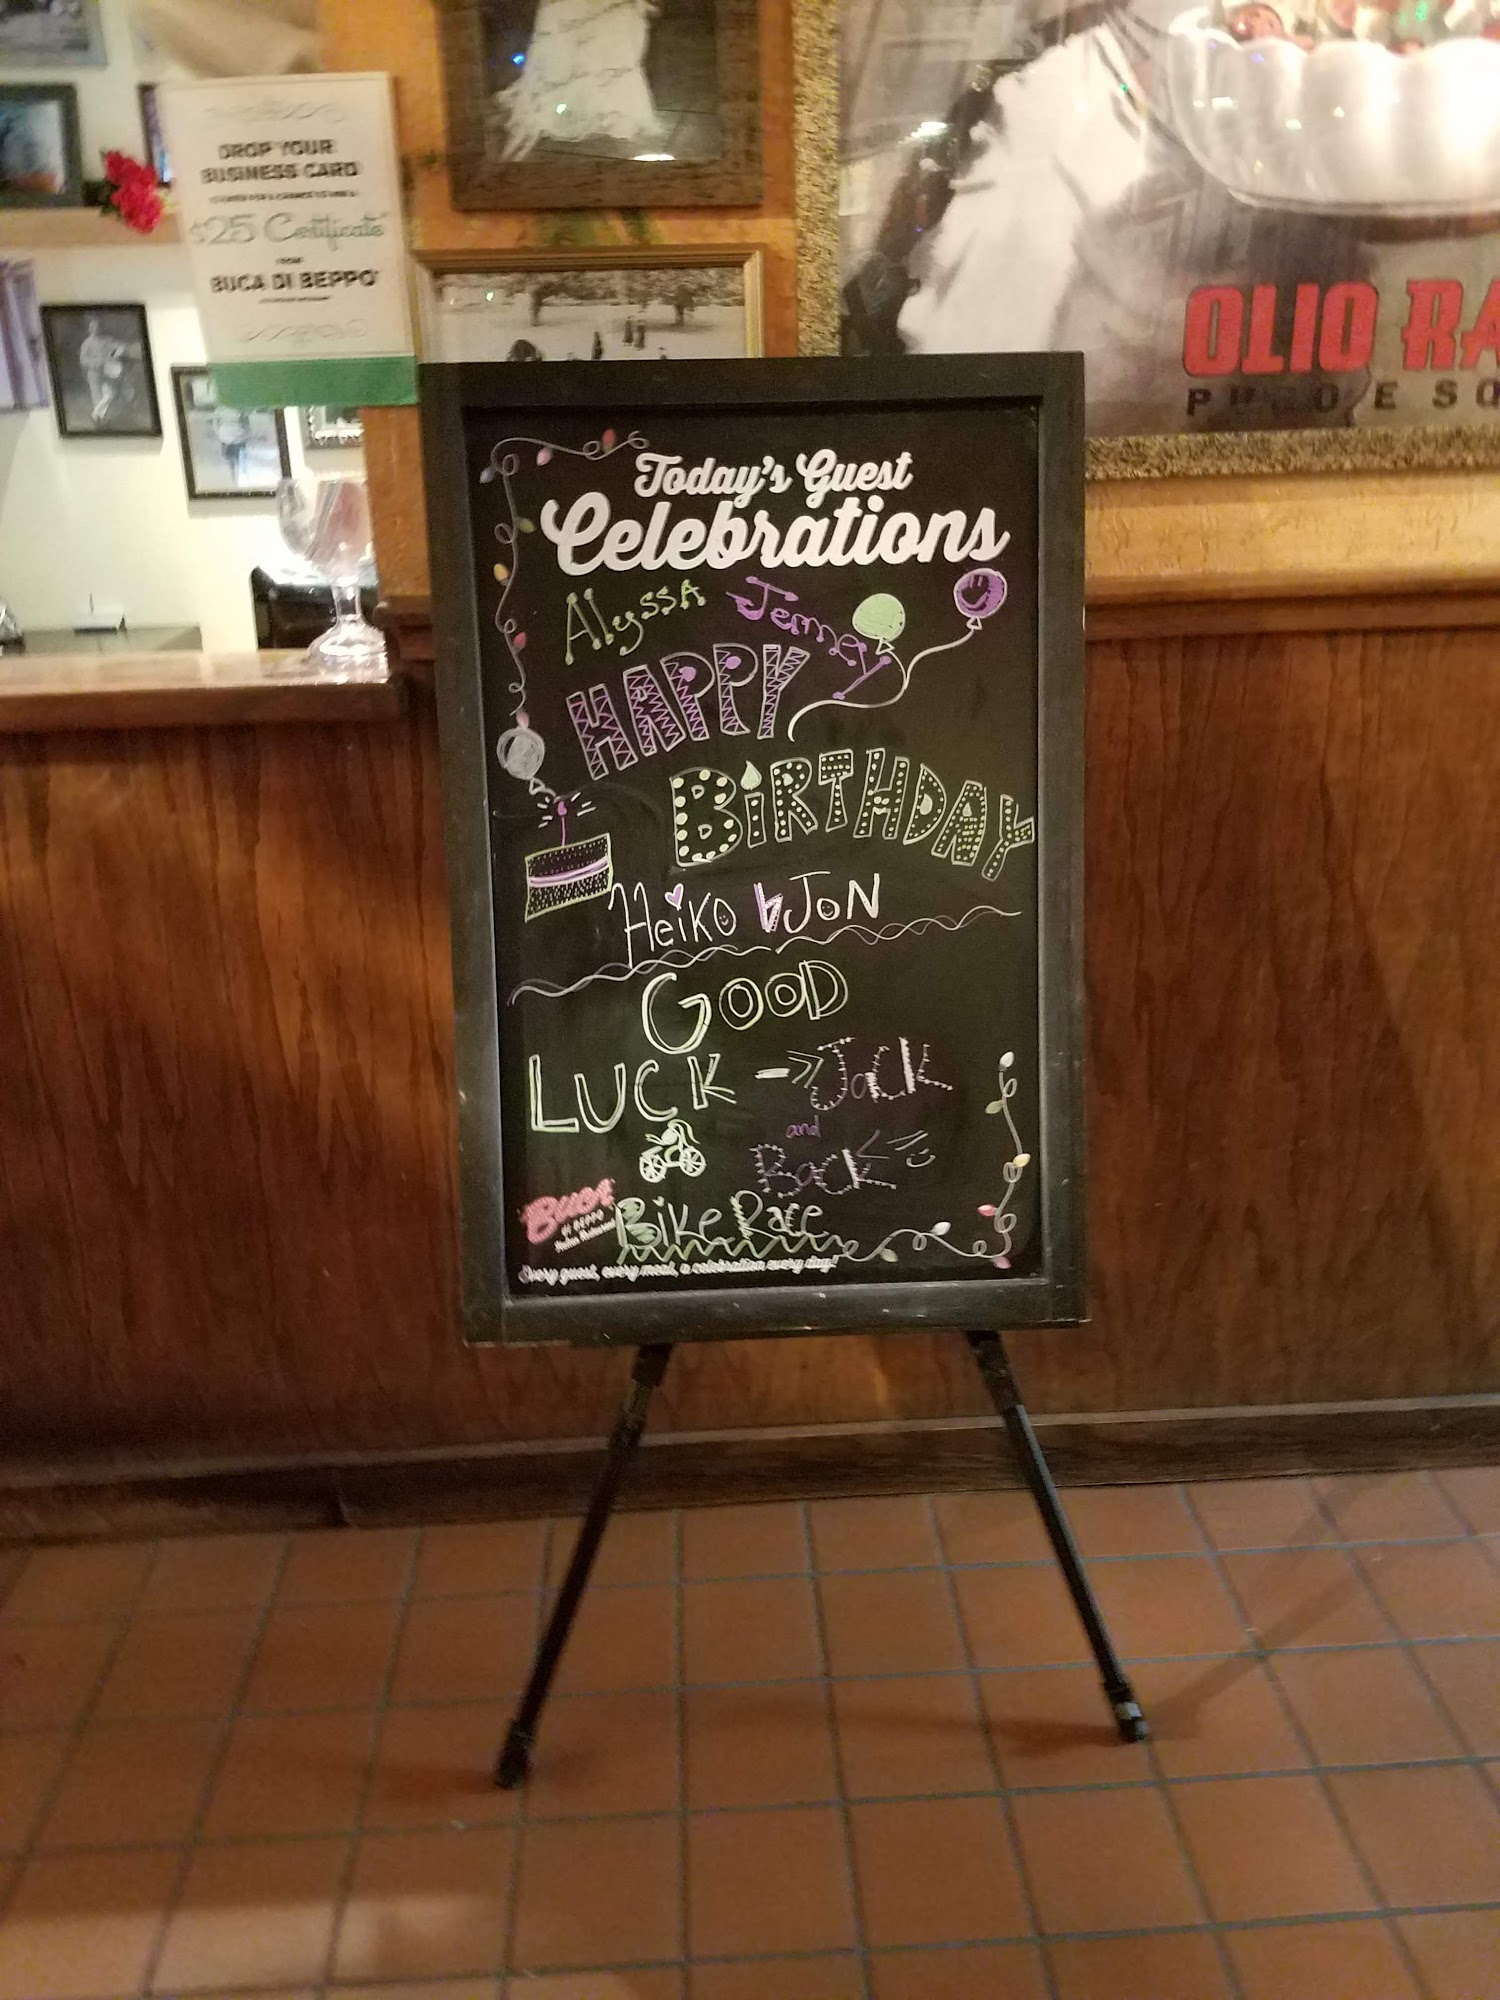 DROP YOUR
BUSINESS CARD
$25 Certificate
FROM
BUCA DI BEPPO
OLIO RA
PURO E SO
Today's Guest
Celebrations
Alyssa Jenney
HAPPY
BIRTHDAY
Heiko & Jon
GOOD
LUCK → Jack
and
Back
Bike Race
BUCA
di BEPPO
Italian Restaurant
Every guest, every meal, a celebration every day!